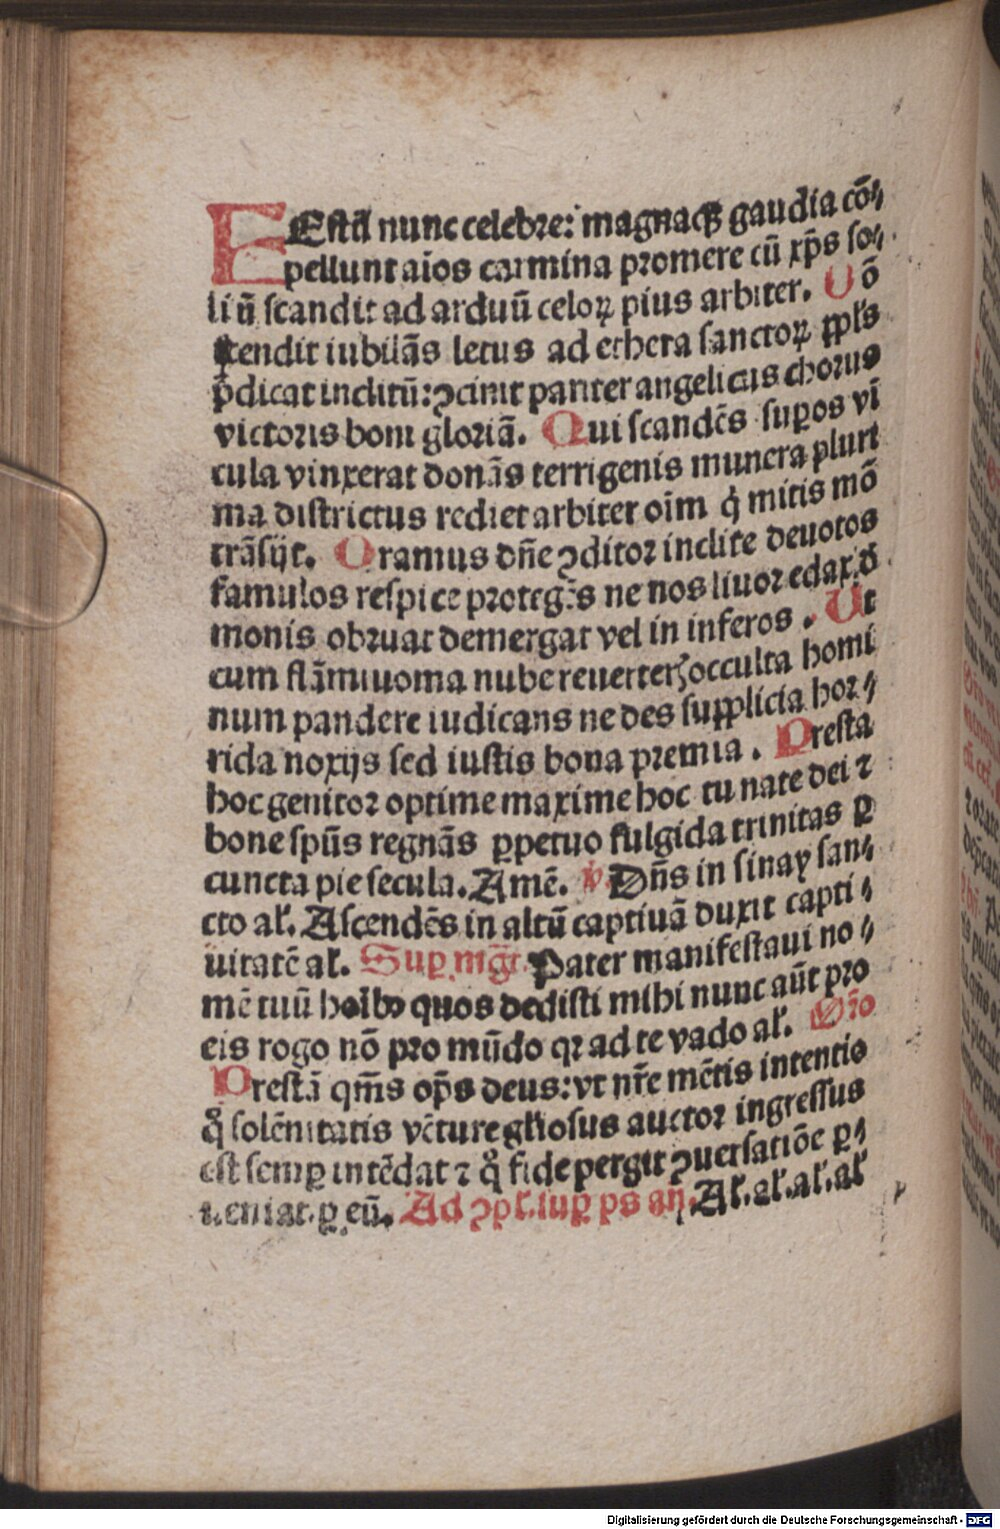 FEstū nunc celebre: magnaqꝫ gaudia cō⸗
pellunt aīos carmina promere cū xp̄s so⸗
liū scandit ad arduū celoꝝ pius arbiter. Cō
scendit iubilās letus ad ethera sanctoꝝ ppl's
p̄dicat inclitū: ꝯcinit pariter angelicus chorus
victoris boni gloriā. Qui scandēs suꝑos vī
cula vinxerat donās terrigenis munera pluri
ma districtus rediet arbiter oīm q̇ mitis mō
trāsijt. Oramus dn̄e ꝯditor inclite deuotos
famulos respice protegēs ne nos liuor edax dē
monis obruat demergat vel in inferos. Ut
cum flāmiuoma nube reuerterꝭ occulta homi
num pandere iudicans ne des supplicia hor⸗
rida noxijs sed iustis bona premia. Presta
hoc genitor optime maxime hoc tu nate dei ⁊
bone sp̄us regnās ꝑpetuo fulgida trinitas ꝑ
cuncta pie secula. Amē. ℣. Dn̄s in sinay san⸗
cto al'. Ascendēs in altū captiuā duxit capti⸗
uitatē al'. Suꝑ mg̃t. Pater manifestaui no⸗
mē tuū hoībꝫ quos dedisti mihi nunc aūt pro
eis rogo nō pro mūdo qꝛ ad te vado al'. Oīo
Prestā qm̄s op̄s deus: vt nr̄e mētis intentio
q̊ solēnitatis vēture gl'iosus auctor ingressus
est semꝑ intēdat ⁊ q̊ fide pergit ꝯuersatiōe ꝑ⸗
ueniat. ꝑ eū. Ad ꝯpl'. suꝑ ps an̄. Al'. al'. al'. al'
Digitalisierung gefördert durch die Deutsche Forschungsgemeinschaft - DFG